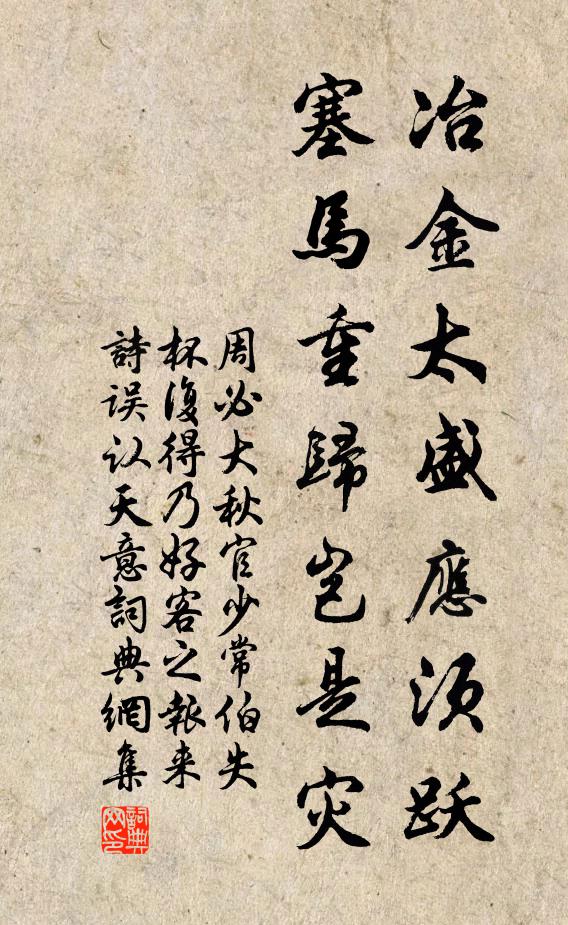 冶金太盛應須跃
塞馬重歸岂是灾
周必大秋官少常伯失
杯復得乃好客之報来
詩误认天意詞典網集
詞典网印